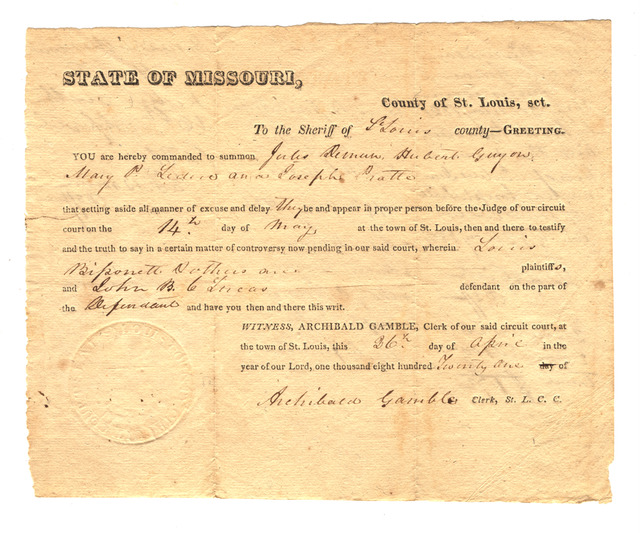 STATE OF MISSOURI,
County of St. Louis, sct.
To the Sheriff of St Louis county—GREETING.
YOU are hereby commanded to summon Jules Demun, Hubert Guyon,
Mary P. Leduc and Joseph Pratte
that setting aside all manner of excuse and delay they be and appear in proper person before the Judge of our circuit
court on the 14th day of May, at the town of St. Louis, then and there to testify
and the truth to say in a certain matter of controversy now pending in our said court, wherein Louis
Bissonett are plaintiffs,
and John B. C Lucas defendant on the part of
the Defendant and have you then and there this writ.
WITNESS, ARCHIBALD GAMBLE, Clerk of our said circuit court, at
the town of St. Louis, this 26th day of April in the
year of our Lord, one thousand eight hundred Twenty one day of
Archibald Gamble Clerk, St. L. C. C.